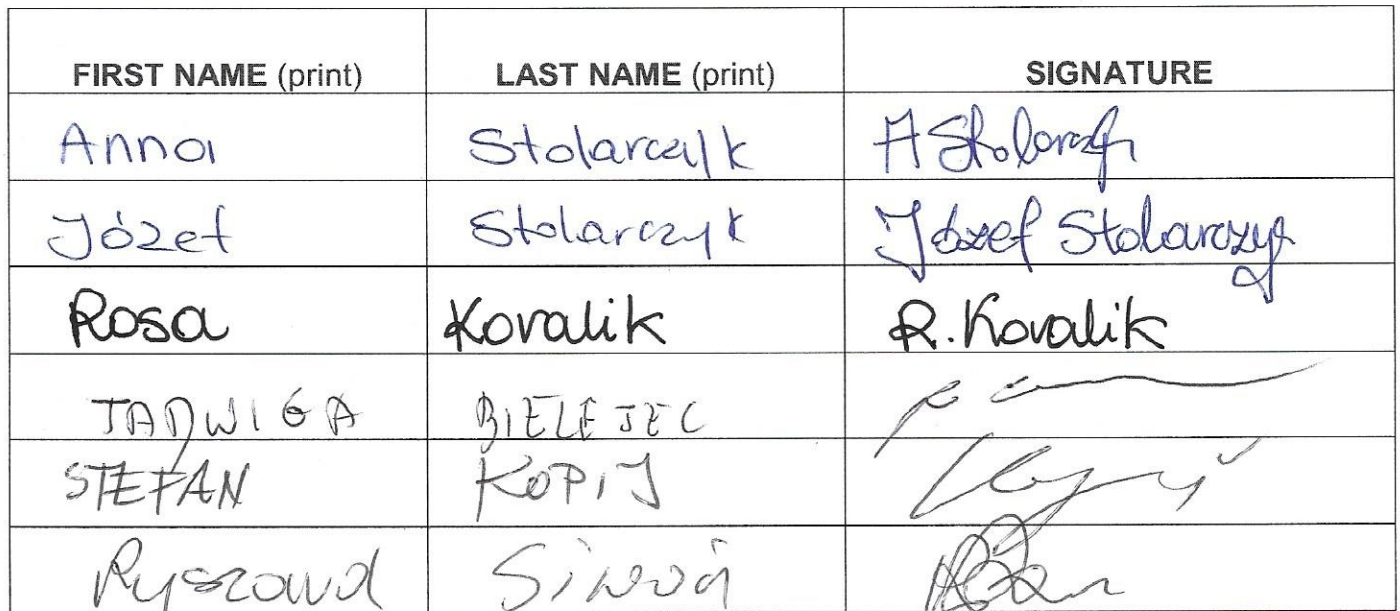 FIRST NAME (print) LAST NAME (print) SIGNATURE
Anna Stolarczyk A Stolarczyk
Józef Stolarczyk Józef Stolarczyk
Rosa Kovalik R. Kovalik
JADWIGA BIELEJEC
STEFAN KOPIJ
Ryszard